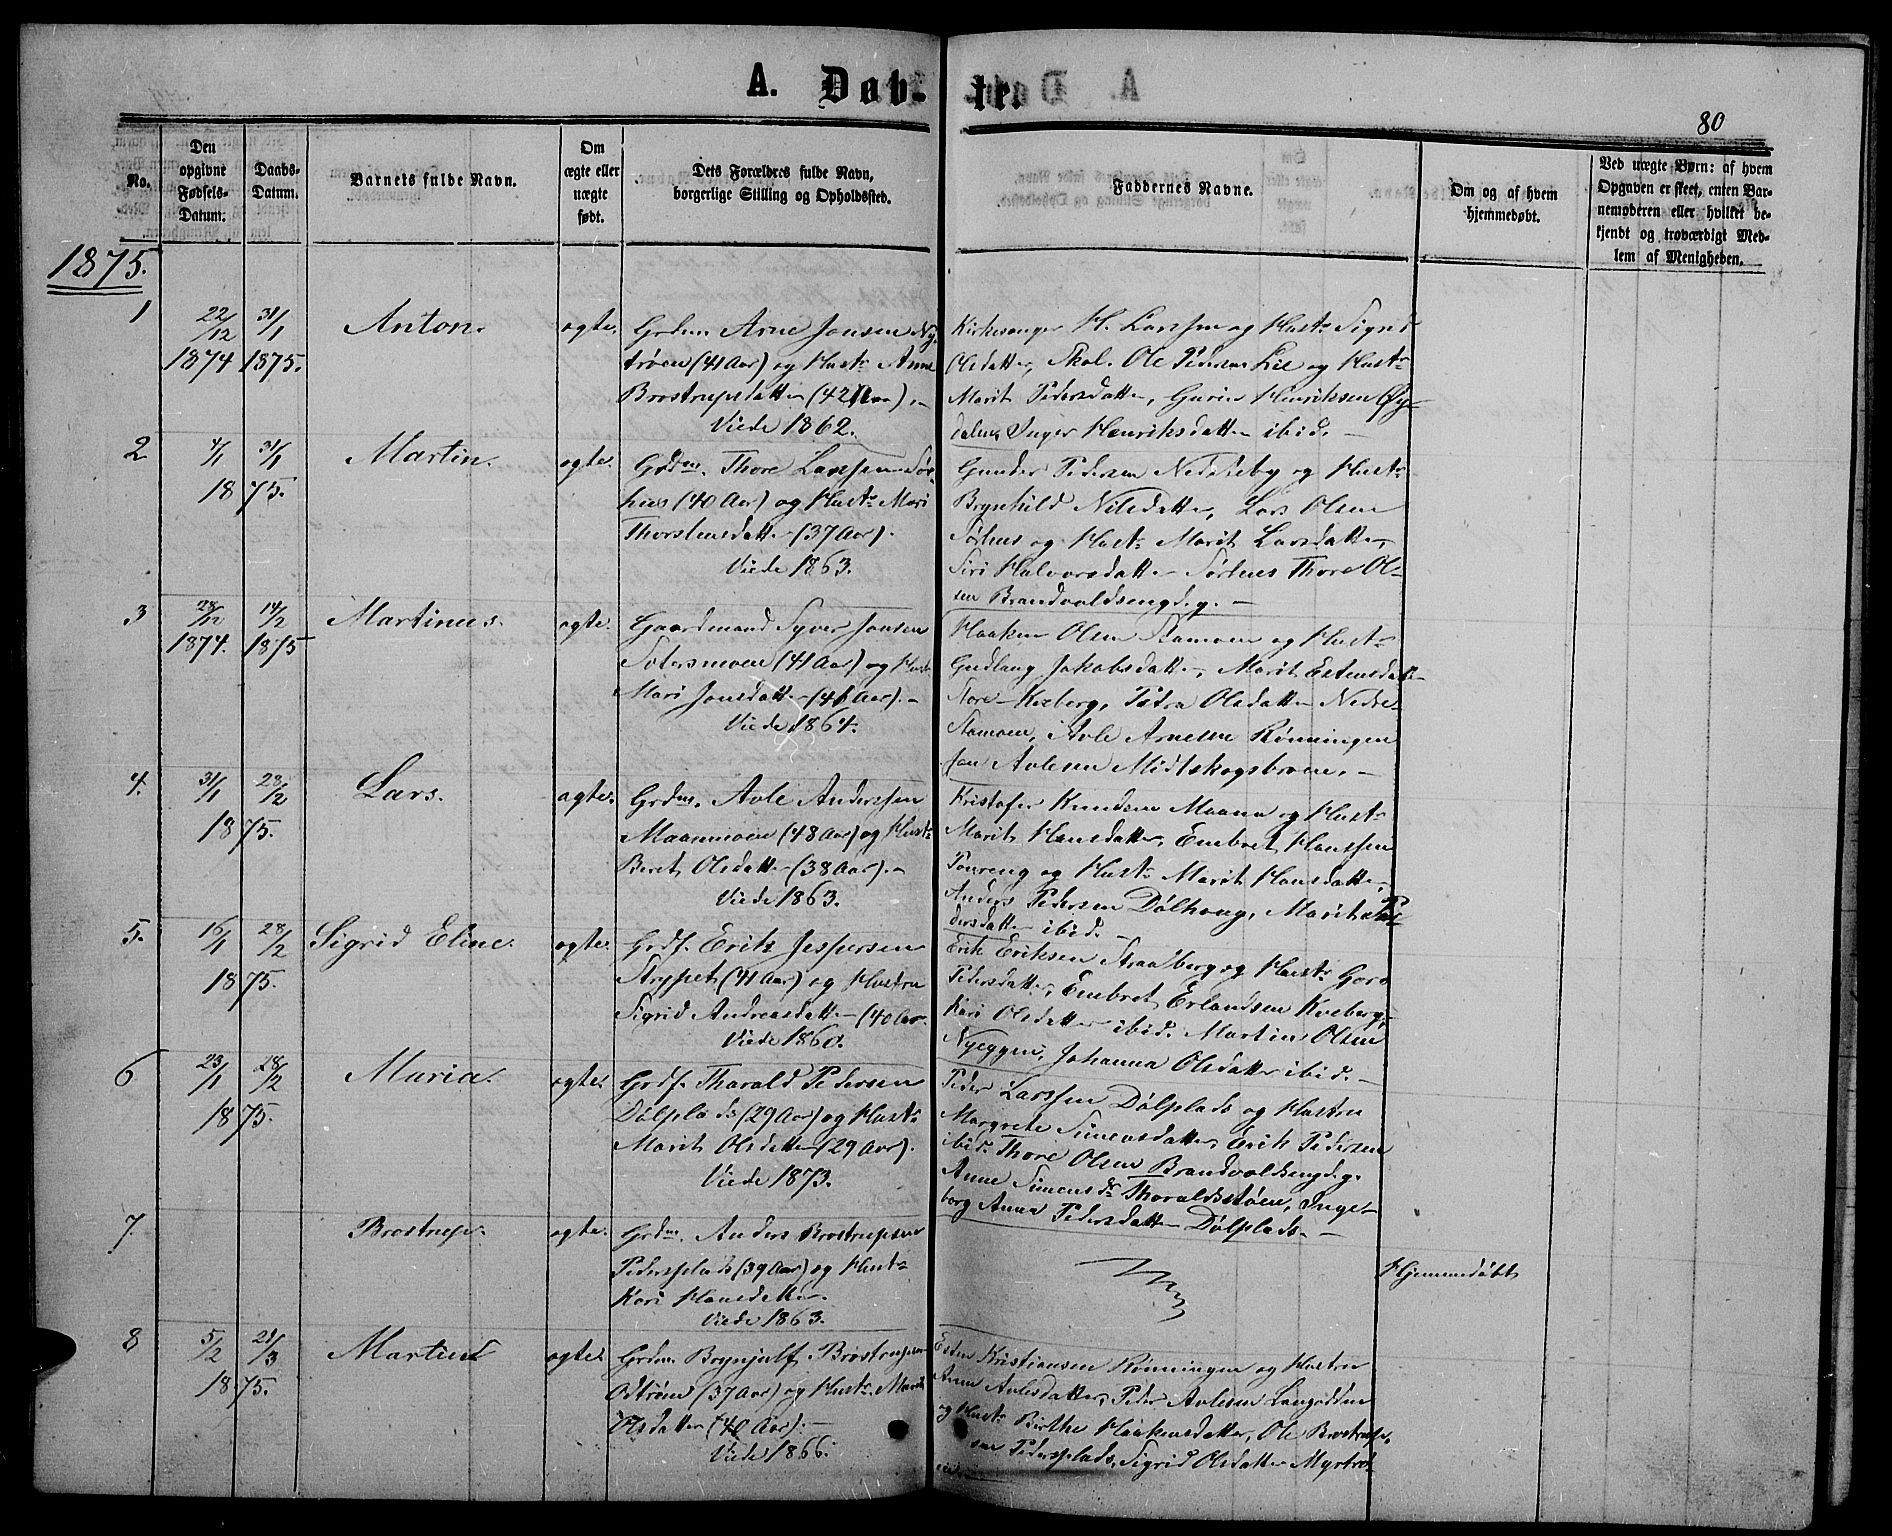 A. Døb-
te.
80
No.
Den
opgivne
Fødsels-
Datum.
Daabs-
Datum.
Barnets fulde Navn.
Om
ægte eller
uægte
født.
Dets Forældres fulde Navn,
borgerlige Stilling og Opholdssted.
Faddernes Navne.
Om og af hvem
hjemmedøbt.
Ved uægte Børn: af hvem
Opgaven er skeet, enten Bar-
nemoderen eller hvilket be-
kjendt og troværdigt Med-
lem af Menigheden.
1875.
1
22/12 1874
31/1 1875.
Anton.
ægte.
Grdm. Arne Jonsen Ny-
trøen (41 Aar) og Hustr Anne
Brostrupsdatter (42 Aar).-
Viede 1862.
Kirkesanger H. Larssen og Hustr Signe
Olsdatter, Skol. Ole Pedersen Lie og Hustr
Marit Pedersdatter, Henriksen Øy-
dalen, Inger Henriksdatter ibid.-
2
4/1
31/1
1875.
Martin.
ægte.
Grdm. Thore Larssen Sør-
hus (40 Aar) og Hustr Mari
Thorstensdatter (37 Aar).
Viede 1863.
Gunder Pedersen Nedsteby og Hustr
Brynhild Nilsdatter, Lars Olsen
Sørhus og Hustr Marit Larsdatter,
Siri Halvorsdatter Sørhus Thore Ol-
sen Brandvoldseng d.y.-
3
28/12 1874.
14/2 1875
Martinus.
ægte.
Gaardmand Syver Jonsen
Sotersmoen (41 Aar) og Hustr
Mari Jonsdatter (46 Aar).-
Viede 1864.
Haaken Olsen Stamoen og Hustr
Gudlaug Jakobsdatter, Marit Estensdatter
Store-Kveberg, Petra Olsdatter Nedre-
Stamoen, Avle Arnesen Rønningen
Jon Avlesen Midtskogsbroen.-
4.
31/1
28/2
1875.
Lars.
ægte.
Grdm. Avle Anderssen
Maanmoen (48 Aar) og Hustr
Beret Olsdatter (38 Aar).-
Viede 1863.
Kristofer Knudsen Maana og Hustr
Marit Hansdatter, Embret Hanssen
Toureng og Hustr Marit Hansdatter,
Anders Pedersen Dølhaug, Marit Pe-
dersdatter ibid.-
5.
16/1
28/2
1875.
Sigrid Eline.
ægte.
Grdf. Erik Jespersen
Stryppet (41 Aar) og Hustru
Sigrid Andreasdatter (40 Aar.
Viede 1860.
Erik Eriksen Straalberg og Hustr Goro
Pedersdatter, Embret Erlandsen Kveberg,
Kari Olsdatter ibid. Martin Olsen
Nyeggen, Johanna Olsdatter ibid.-
6
23/1
28/2
1875.
Maria.
ægte.
Grdf. Tharald Pedersen
Dølplads (29 Aar) og Hustr
Marit Olsdatter (29 Aar).
Viede 1873.
Peder Larssen Dølplads og Hustru
Margrete Simensdatter, Erik Pedersen
ibid. Thore Olsen Brandvoldseng d.y.
Anne Simensdr Tharaldsstøen, Inge-
borg Anna Pedersdatter Dølplads.-
7.
Brostrup.
ægte.
Grdm. Anders Brostrupsen
Pedersplads (39 Aar) og Hustr
Kari Hansdatter.
Viede 1863.
Hjemmedøbt
8
5/2
21/3
1875.
Martin
ægte.
Grdm. Brynjulf Brostrupsen
Odtrøen (37 Aar) og Hustr. Marit
Olsdatter (40 Aar).-
Viede 1866.
Esten Kristiansen Rønningen og Hustru
Anne Avlesdatter, Peder Avlesen Langødden
og Hustr Birthe Haakensdatter, Ole Brostrup-
sen Pedersplads, Sigrid Olsdatter Myrtrø-